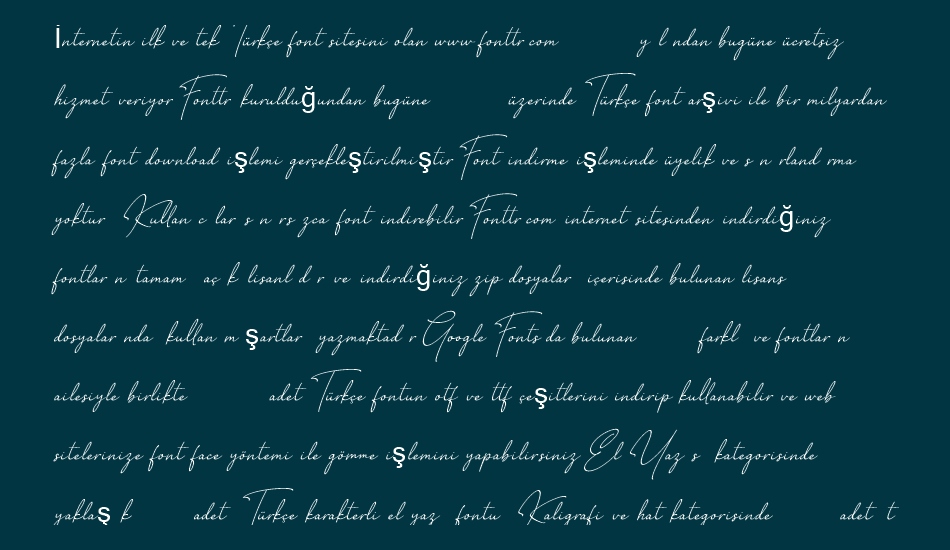 İnternetin ilk ve tek Türkçe font sitesini olan www fonttr com y l ndan bugüne ücretsiz
hizmet veriyor Fonttr kurulduğundan bugüne üzerinde Türkçe font arşivi ile bir milyardan
fazla font download işlemi gerçekleştirilmiştir Font indirme işleminde üyelik ve s n rland rma
yoktur Kullan c lar s n rs zca font indirebilir Fonttr com internet sitesinden indirdiğiniz
fontlar n tamam aç k lisanl d r ve indirdiğiniz zip dosyalar içerisinde bulunan lisans
dosyalar nda kullan m şartlar yazmaktad r Google Fonts da bulunan farkl ve fontlar n
ailesiyle birlikte adet Türkçe fontun otf ve ttf çeşitlerini indirip kullanabilir ve web
sitelerinize font face yöntemi ile gömme işlemini yapabilirsiniz El Yaz s kategorisinde
yaklaş k adet Türkçe karakterli el yaz fontu Kaligrafi ve hat kategorisinde adet t